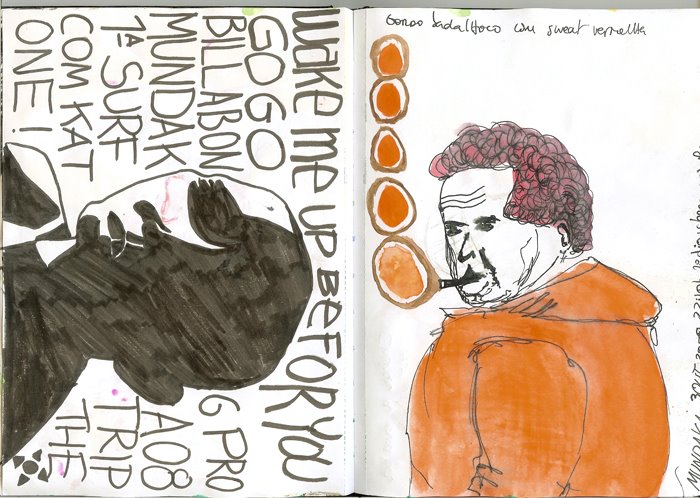 WAKE ME UP BEFOR YOU
GO GO
BILLABON G PRO
MUNDAK A08
1ª SURF TRIP
COM KAT THE
ONE!
Gordo badalhoco com sweat vermelha